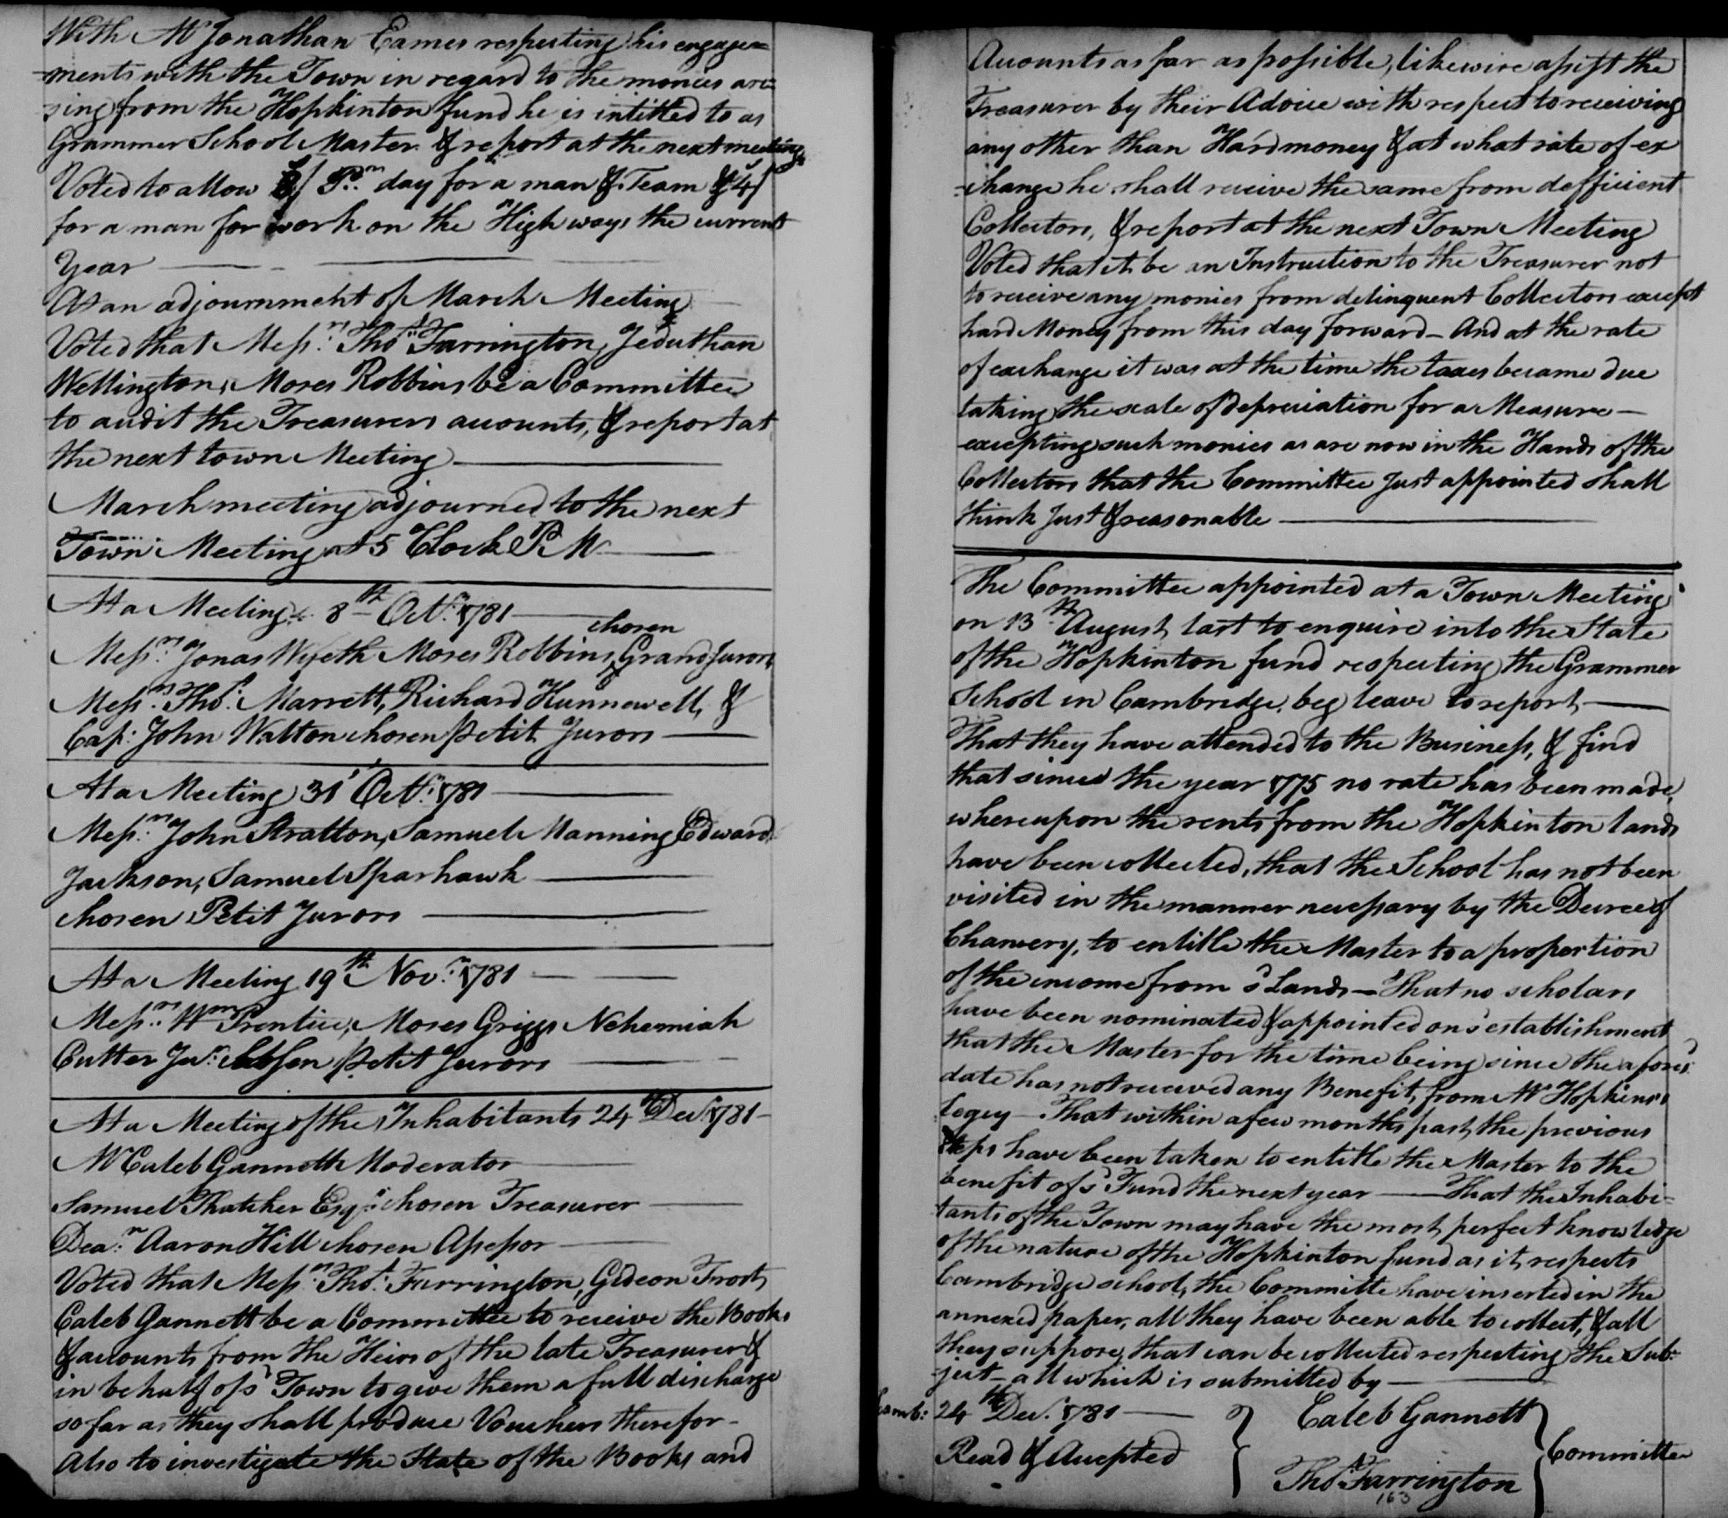 With Mr Jonathan Eames respecting his engage=
=ments with the Town in regard to the monies ari=
sing from the Hopkinton fund he is intitled to as
Grammer School Master & report at the next meeting
Voted to allow 8/ Pr. day for a man & Team & 4/
for a man for work on the High ways the current
Year
At an adjournment of March Meeting
Voted that Messrs. Thos. Farrington, Jeduthan
Wellington, Moses Robbins be a Committee
to audit the Treasurers accounts, & report at
the next town Meeting
March meeting adjourned to the next
Town Meeting at 5 Clock P. M
At a Meeting 8th Octr. 1781
chosen
Messrs. Jonas Wyeth Moses Robbins Grand Jurors
Messrs. Thos. Marrett, Richard Hunnewell, &
Cap: John Walton chosen Petit Jurors
At a Meeting 31st Octr. 1781
Messrs. John Stratton, Samuel Manning Edward
Jackson, Samuel Sparhawk
chosen Petit Jurors
At a Meeting 19th Novr. 1781
Messrs. Wm Prentice, Moses Griggs Nehemiah
Cutter Junr. chosen Petit Jurors
At a Meeting of the Inhabitants 24th Decr. 1781
Mr Caleb Gannett Moderator
Samuel Thatcher Esqr. chosen Treasurer
Deacn. Aaron Hill chosen Assessor
Voted that Messrs. Thos. Farrington, Gideon Frost,
Caleb Gannett be a Committee to receive the Books
& accounts from the Heirs of the late Treasurer &
in behalf of sd Town to give them a full discharge
so far as they shall produce Vouchers therefor
Also to investigate the State of the Books and
Accounts as far as possible, likewise assist the
Treasurer by their Advice with respect to receiving
any other than Hard money & at what rate of ex
=change he shall receive the same from defficient
Collectors, & report at the next Town Meeting
Voted that it be an Instruction to the Treasurer not
to receive any monies from delinquent Collectors except
hard Money from this day forward - And at the rate
of exchange it was at the time the taxes became due
taking the scale of depreciation for a Measure
excepting such monies as are now in the Hands of the
Collectors that the Committee Just appointed shall
think Just & reasonable
The Committee appointed at a Town Meeting
on 13th August last to enquire into the State
of the Hopkinton fund respecting the Grammer
School in Cambridge, beg leave to report,
That they have attended to the Business, & find
that since the year 1775 no rate has been made,
whereupon the rents from the Hopkinton lands
have been collected, that the School has not been
visited in the manner necessary by the Decree of
Chancery, to entitle the Master to a proportion
of the income from sd Lands - That no scholars
have been nominated & appointed on sd establishment
that the Master for the time being since the aforesd.
date has not received any Benefit, from Mr Hopkins's
legcy - That within a few months past, the previous
steps have been taken to entitle the Master to the
benefit of sd Fund the next year - That the Inhabi=
tants of the Town may have the most perfect knowledge
of the nature of the Hopkinton fund as it respects
Cambridge school, the Committe have inserted in the
annexed paper, all they have been able to collect, & all
they suppose, that can be collected respecting the Sub=
=ject - all which is submitted by
Camb: 24th Decr. 1781 Caleb Gannett
Read & Accepted Committee
Thos. Farrington
163